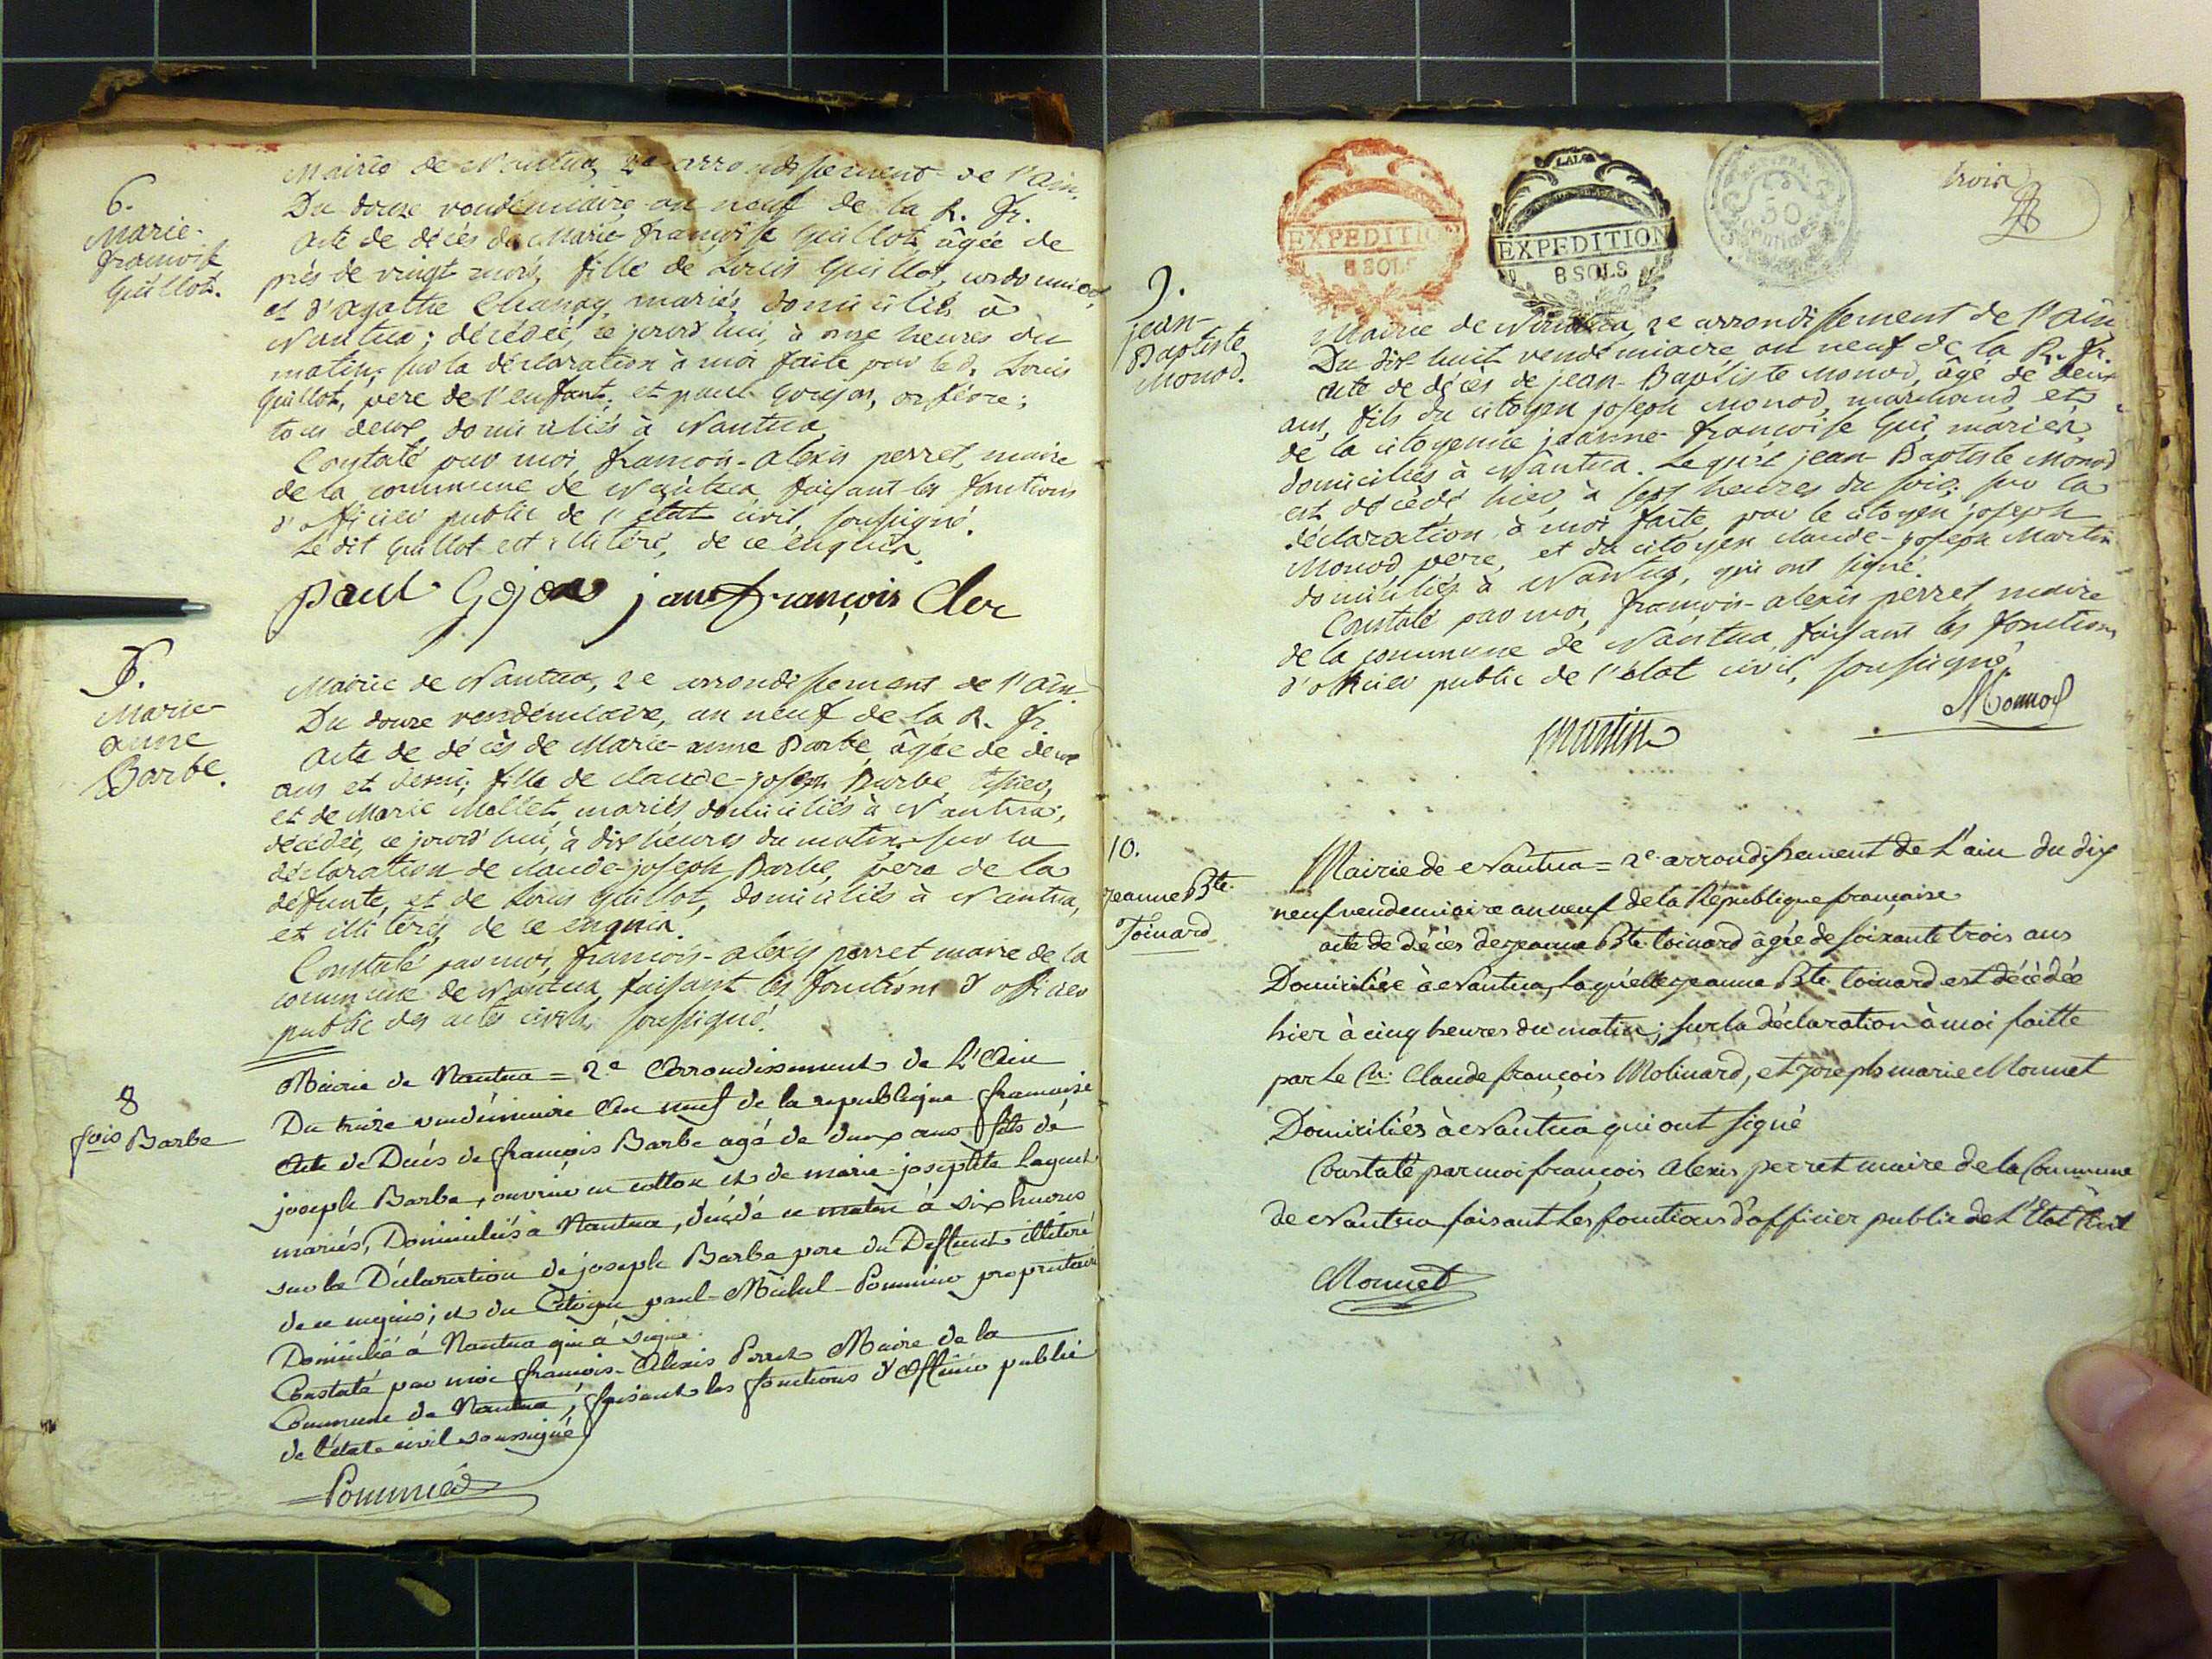 6.
Marie-
françoise
Guillot.
Mairie de Nantua, 2e arrondissement de l'Ain.
Du douze vendémiaire an neuf de la R. fr.
Acte de décès de Marie françoise Guillot, âgée de
près de vingt mois, fille de Louis Guillot, cordonnier,
et d'agathe Chanay, mariés, domiciliés à
Nantua; décédée, ce jourd'hui, à onze heures du
matin; sur la déclaration à moi faite par led. Louis
Guillot, pere de l'enfant; et paul Goujon, orfévre;
tous deux domiciliés à Nantua.
Constaté par moi, françois-alexis perret, maire
de la commune de Nantua, faisant les fonctions
d'officier public de l'état civil, soussigné.
Le dit Guillot est illitéré, de ce enquis.
paul Gojon jean françois Cler
7.
Marie-
anne
Barbe.
Mairie de Nantua, 2e arrondissement de l'Ain
Du douze vendémiaire, an neuf de la R. fr.
Acte de décès de Marie-anne Barbe, âgée de deux
ans et demi, fille de claude-joseph Barbe, tissier,
et de Marie Mollet, mariés, domiciliés à Nantua;
décédée, ce jourd'hui, à dix heures du matin sur la
déclaration de claude-joseph Barbe, pere de la
défunte, et de Louis Guillot, domiciliés à Nantua,
et illitérés, de ce enquis.
Constaté par moi, françois-alexis perret maire de la
commune de Nantua, faisant les fonctions d'officier
public des actes civils, soussigné.
8
fois Barbe
Mairie de Nantua = 2e Arrondissement de L'Ain
Du treize vendémiaire An neuf de la republique francaise
Acte de Décés de françois Barbe agé de deux ans fils de
joseph Barbe, ouvrier en cotton et de marie-josephte Laguet
mariés, Domiciliés à Nantua, décédé ce matin à six heures
sur la Déclaration de joseph Barbe pere du Deffunt illiteré
de ce enquis; et du Citoyen paul-Michel-Pommier propriétaire
Domicilié à Nantua qui a signé.
Constaté par moi françois-Alexis Perret Maire de la
Commune de Nantua, faisant les fonctions d'Officier public
de l'état civil soussigné
Pommier
trois
EXPEDITION
8 SOLS
EXPEDITION
8 SOLS
50
Centimes
9.
jean-
Baptiste
Monod.
Mairie de Nantua, 2e arrondissement de l'Ain
Du dix huit vendémiaire an neuf de la R. fr.
Acte de décès de jean-Baptiste Monod, âgé de deux
ans, fils du citoyen joseph Monod, marchand, et
de la citoyenne jeanne-françoise Gui, mariés,
domiciliés à Nantua. Lequel jean-Baptiste Monod
est décédé hier, à sept heures du soir; sur la
déclaration à moi faite, par le citoyen joseph
Monod pere, et du citoyen claude-joseph Martin
domiciliés à Nantua, qui ont signé.
Constaté par moi, françois-alexis perret, maire
de la commune de Nantua, faisant les fonctions
d'officier public de l'état civil, soussigné.
Monnod
Martin
10.
jeanne Bte
Toinard
Mairie de Nantua = 2e arrondissement de L'ain du dix
neuf vendemiaire an neuf de la République française
acte de décès de jeanne Bte toinard âgée de soixante trois ans
Domiciliée à Nantua, laquelle jeanne Bte toinard est décédée
hier à cinq heures du matin; sur la déclaration à moi faitte
par Le Cn Claude françois Molinard, et joseph marie Monnet
Domiciliés à Nantua qui ont signé
Constaté par moi françois Alexis perret maire de la Commune
de Nantua faisant Les fonctions d'officier public de L'Etat Civil
Monnet